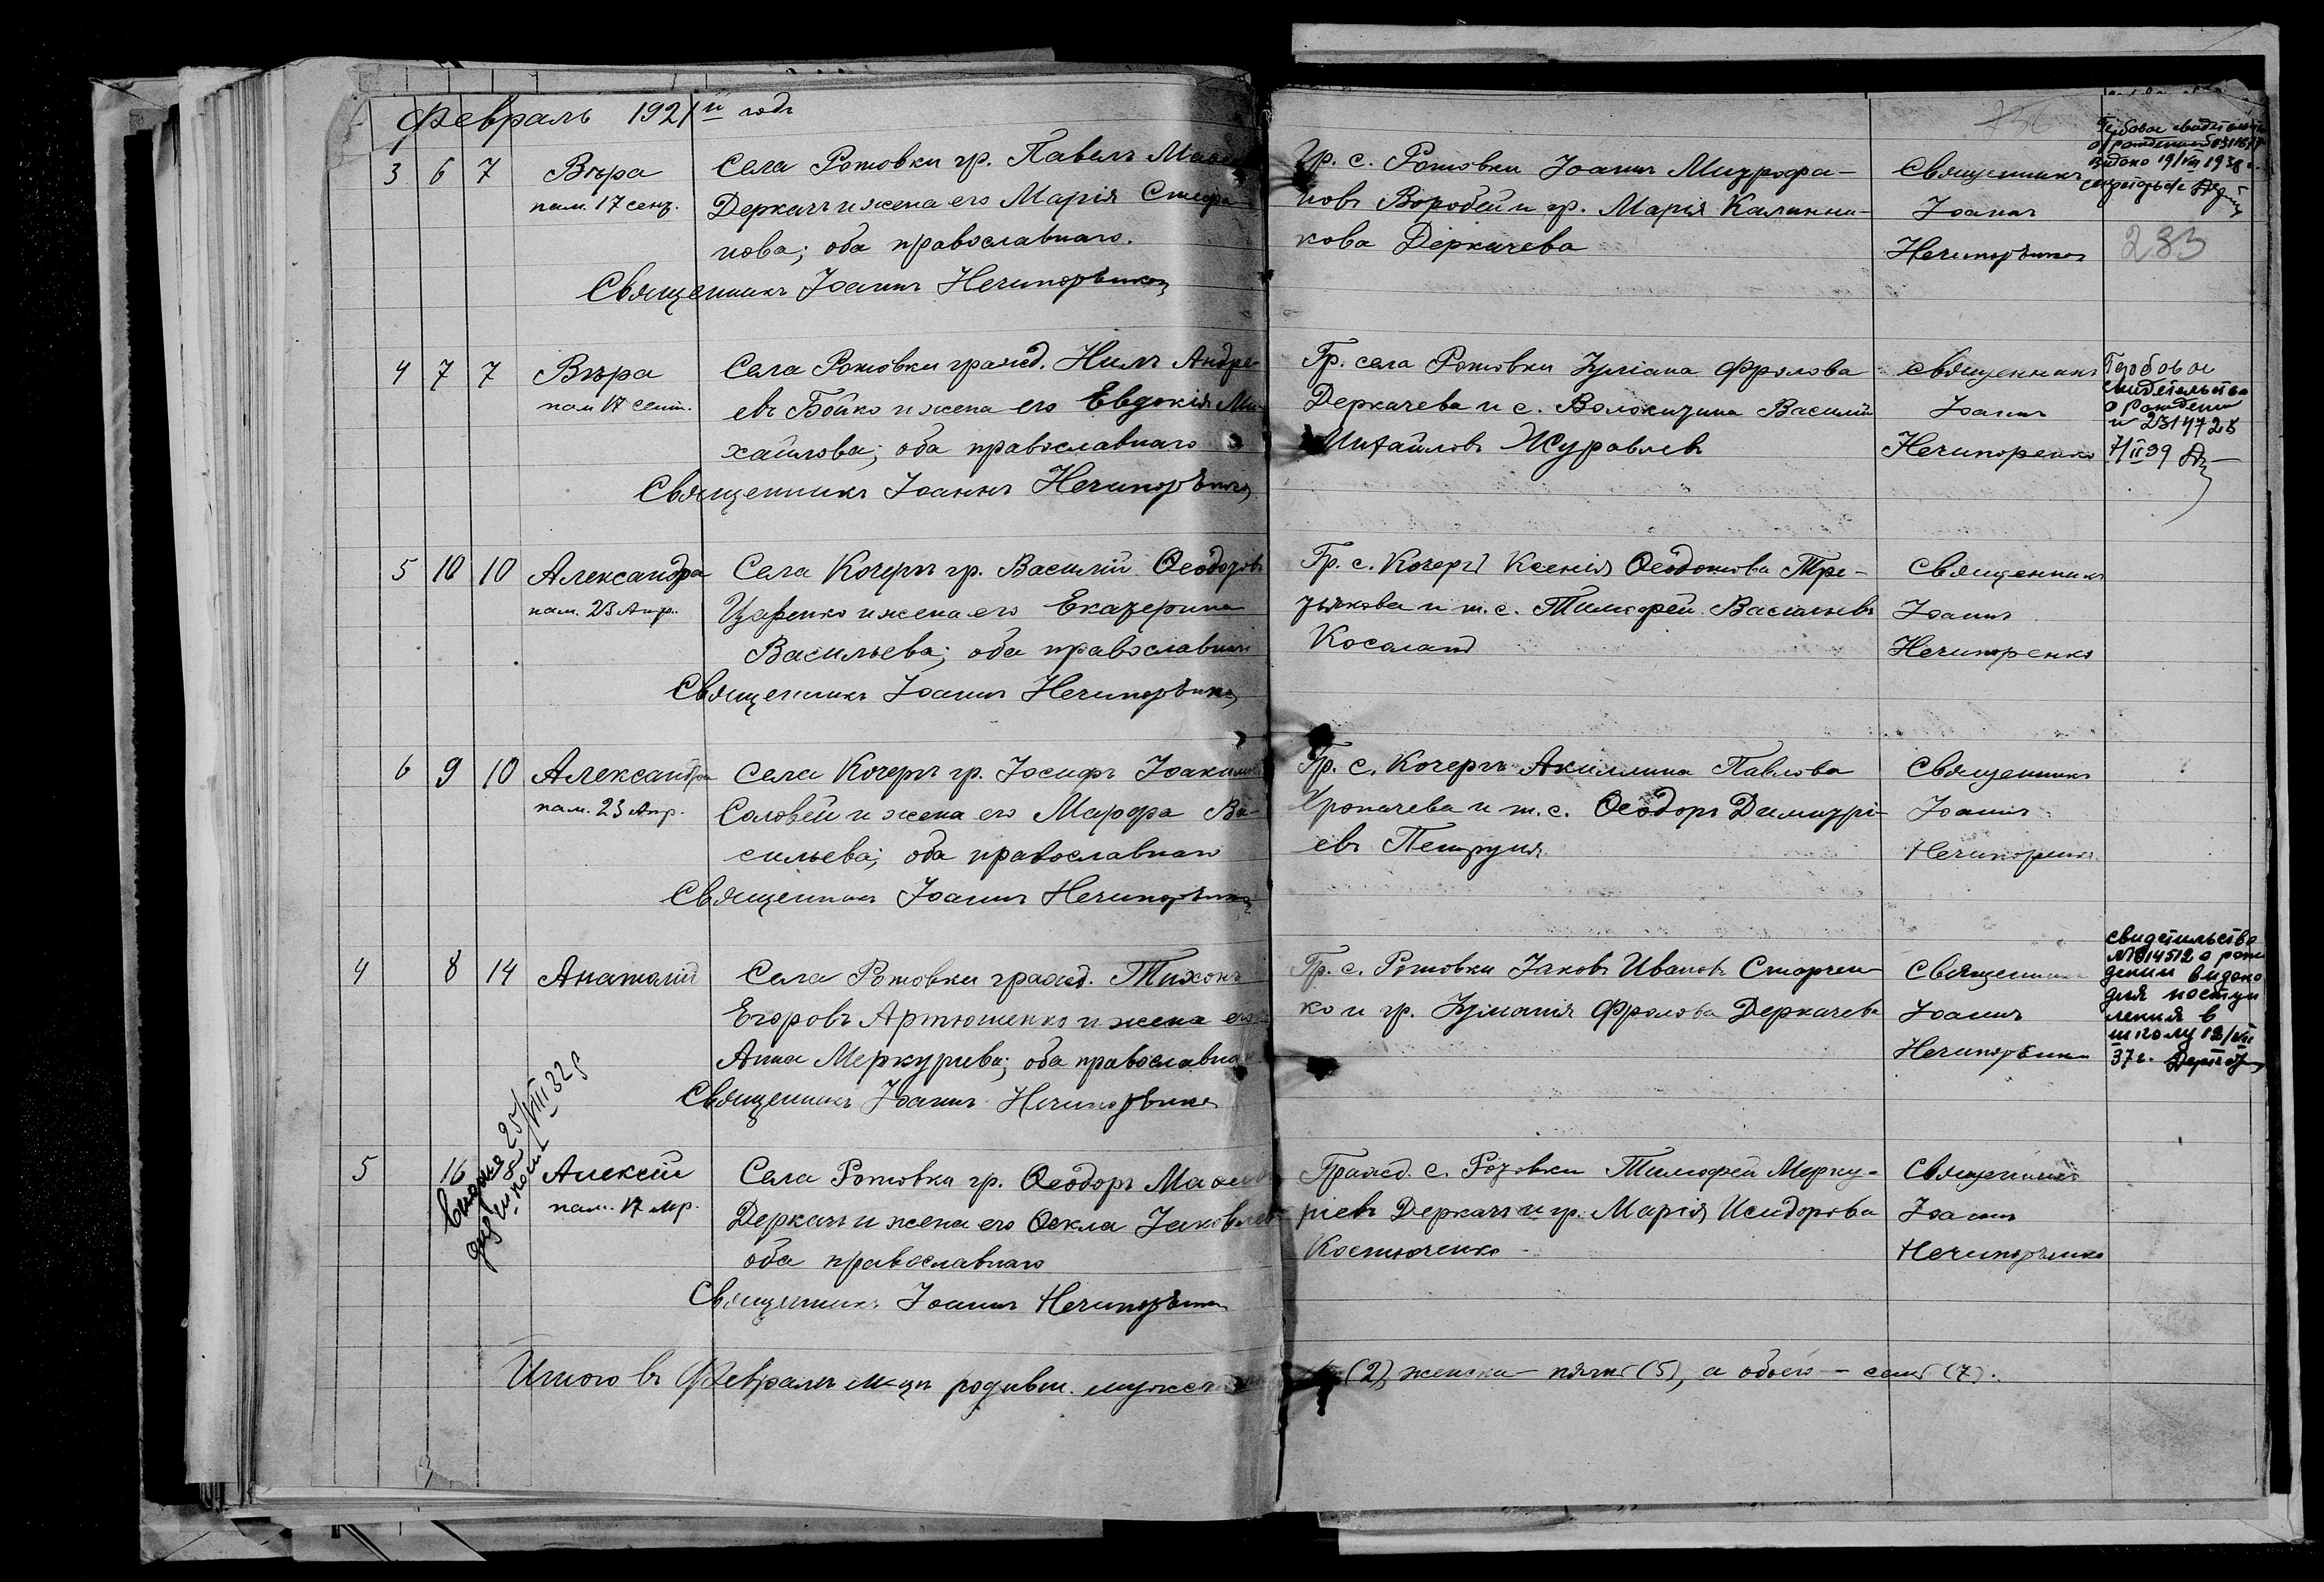 Февраль 1921й годъ
3 6 7 Вѣра
пам. 17 сент.
Села Ротовки гр. Павелъ
Деркачъ и жена его Марія Стефа-
нова; оба православнаго.
Священникъ Іоаннъ Нечипоренко
Гр. с. Ротовки Іоаннъ Митрофа-
новъ Воробей и гр. Марія Калинни-
кова Деркачева
Священникъ
Іоаннъ
Нечипоренко
Гербовое свидѣтельство
о рождении
видано 19/VIII 1938 г.
283
4 7 7 Вѣра
пам 17 сент.
Села Ротовки гражд. Нилъ Андре-
евъ Бойко и жена его Евдокія Ми-
хайлова; оба православнаго
Священникъ Іоаннъ Нечипоренко
Гр. села Ротовки Іуліана Фролова
Деркачева и с. Волокитина Василій
Михайловъ Журавлевъ
Священникъ
Іоаннъ
Нечипоренко
Гербовое
свидетельство
о рождении
7/II 39
5 10 10 Александра
пам. 23 Апр.
Села Кочергъ гр. Василій Ѳеодоровъ
Царенко и жена его Екатерина
Васильева; оба православнаго
Священникъ Іоаннъ Нечипоренко
Гр. с. Кочергъ Ксенія Ѳеодотова Тре-
тьякова и т. с. Тимофей Васильевъ
Косолапъ
Священникъ
Іоаннъ
Нечипоренко
6 9 10 Александра
пам. 23 Апр.
Села Кочергъ гр. Іосифъ Іоакимовъ
Соловей и жена его Марфа Ва-
сильева; оба православнаго
Священникъ Іоаннъ Нечипоренко
Гр. с. Кочергъ Акилина Павлова
Хропачева и т. с. Ѳеодоръ Димитрі-
евъ Петруня
Священникъ
Іоаннъ
Нечипоренко
4 8 14 Анатолій
Села Ротовки гражд. Тихонъ
Егоровъ Артюшенко и жена его
Анна Меркурьева; оба православнаго
Священникъ Іоаннъ Нечипоренко
Гр. с. Ротовки Іаковъ Ивановъ Старчен-
ко и гр. Іуліанія Фролова Деркачева
Священникъ
Іоаннъ
Нечипоренко
свидетельство
№814512 о рож
дении видано
для поступ
ления в
школу 12/VII
37 г.
25/VIII 32
5 16 18 Алексѣй
пам. 17 мр.
Села Ротовки гр. Ѳеодоръ
Деркачъ и жена его Ѳекла Іаковлева
оба православнаго
Священникъ Іоаннъ Нечипоренко
Гражд. с. Ротовки Тимофей Мерку-
ріевъ Деркачъ и гр. Марія Исидорова
Костюченко
Священникъ
Іоаннъ
Нечипоренко
Итого въ Февралѣ м-цѣ родивш. мужска
(2), женска - пять (5), а обоего - семь (7).